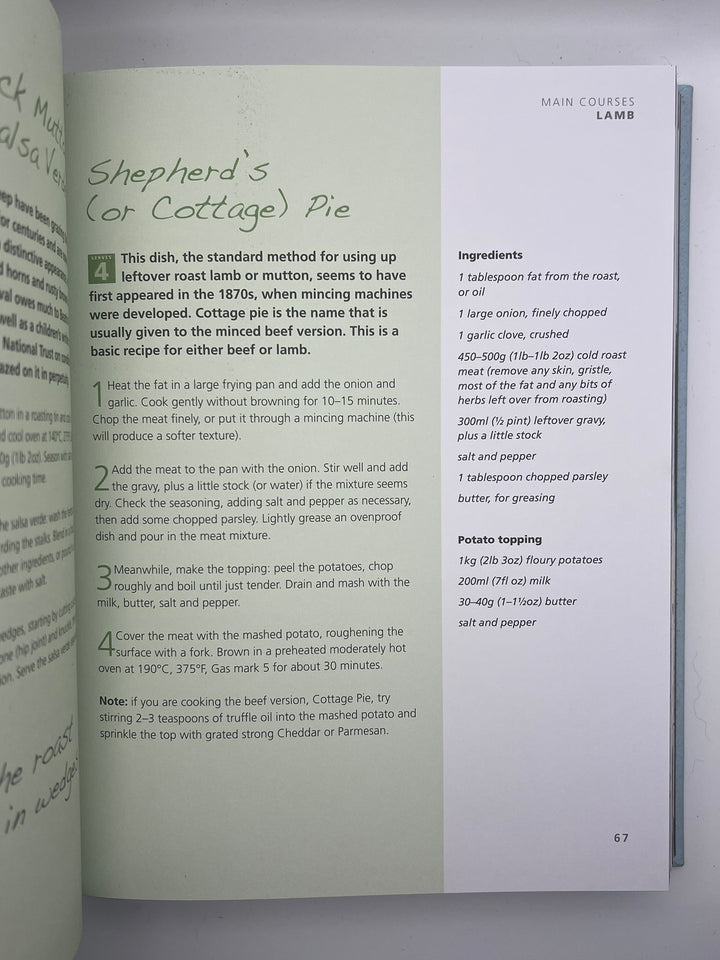 ck Mutt
alsa Ver
eep have been grazing
for centuries and are
distinctive appearan
d horns and rusty brown
val owes much to
well as a children's
National Trust on
azed on it in perpetuity
tton in a roasting tin and
d cool oven at 140°C, 275°F
0g (1lb 2oz). Season with
cooking time.
he salsa verde: wash the
rding the stalks. Blend in
other ingredients, or pound
aste with salt.
edges, starting by cutting
one (hip joint) and knuckle
on. Serve the salsa verde
he roast
in wedge
Shepherd's
(or Cottage) Pie
SERVES
4
This dish, the standard method for using up
leftover roast lamb or mutton, seems to have
first appeared in the 1870s, when mincing machines
were developed. Cottage pie is the name that is
usually given to the minced beef version. This is a
basic recipe for either beef or lamb.
1 Heat the fat in a large frying pan and add the onion and
garlic. Cook gently without browning for 10–15 minutes.
Chop the meat finely, or put it through a mincing machine (this
will produce a softer texture).
2 Add the meat to the pan with the onion. Stir well and add
the gravy, plus a little stock (or water) if the mixture seems
dry. Check the seasoning, adding salt and pepper as necessary,
then add some chopped parsley. Lightly grease an ovenproof
dish and pour in the meat mixture.
3 Meanwhile, make the topping: peel the potatoes, chop
roughly and boil until just tender. Drain and mash with the
milk, butter, salt and pepper.
4 Cover the meat with the mashed potato, roughening the
surface with a fork. Brown in a preheated moderately hot
oven at 190°C, 375°F, Gas mark 5 for about 30 minutes.
Note: if you are cooking the beef version, Cottage Pie, try
stirring 2–3 teaspoons of truffle oil into the mashed potato and
sprinkle the top with grated strong Cheddar or Parmesan.
MAIN COURSES
LAMB
Ingredients
1 tablespoon fat from the roast,
or oil
1 large onion, finely chopped
1 garlic clove, crushed
450–500g (1lb–1lb 2oz) cold roast
meat (remove any skin, gristle,
most of the fat and any bits of
herbs left over from roasting)
300ml (½ pint) leftover gravy,
plus a little stock
salt and pepper
1 tablespoon chopped parsley
butter, for greasing
Potato topping
1kg (2lb 3oz) floury potatoes
200ml (7fl oz) milk
30–40g (1–1½oz) butter
salt and pepper
67